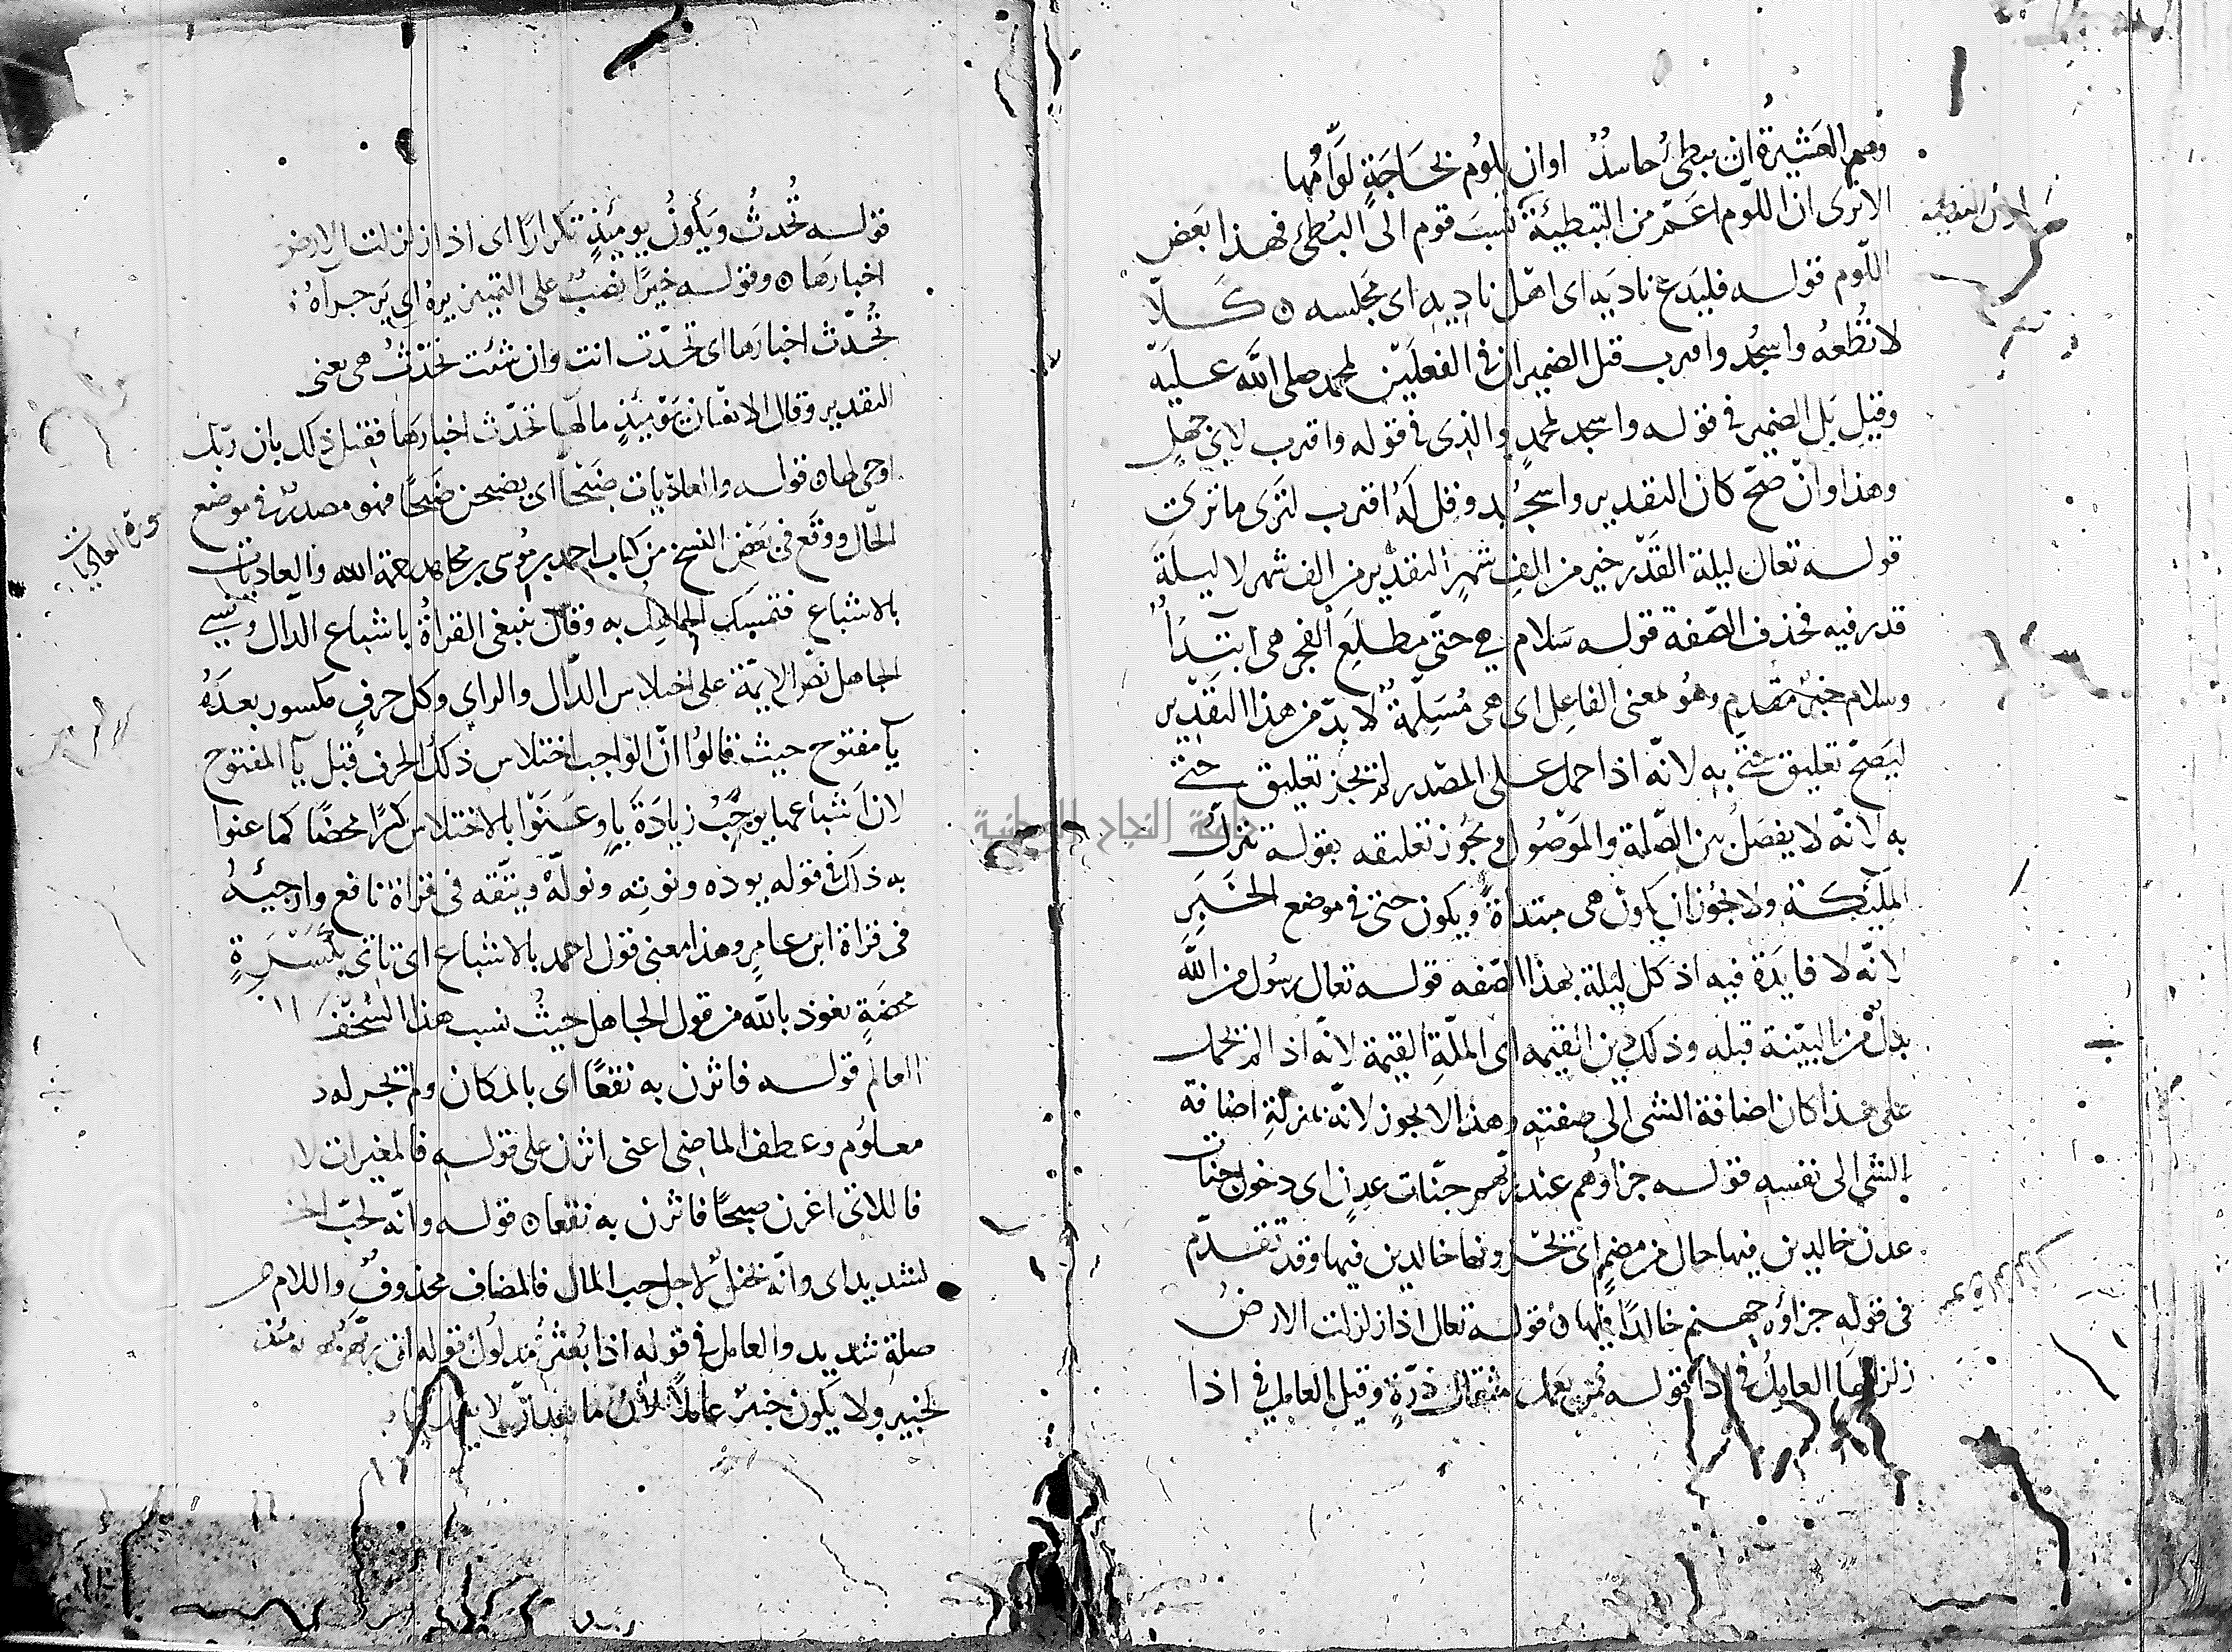 وهم العشيرة ان يبطئ حاسد او ان يلوم بحاجة لوامها
الا ترى ان اللوم اعم من التبطئة نسب قوم الى البطئ فهذا بعض
اللوم قوله فليدع ناديه اى اهل ناديه اى مجلسه ن كلا
لا تطعه واسجد واقرب قيل الضميران فى الفعلين لمحمد صلى الله عليه
وقيل بل الضمير فى قوله واسجد لمحمد والذى فى قوله واقرب لابى جهل
وهذا وان صح كان التقدير واسجد وقل له اقترب لترى ما ترى
قوله تعالى ليلة القدر خير من الف شهر التقدير من الف شهر لا ليلة
قدر فيه فحذف الصفة قوله سلام هى حتى مطلع الفجر هى ابتدأ
وسلام خبر مقدم وهو بمعنى الفاعل اى هى مسلمة لا بد من هذا التقدير
ليصح تعليق حتى به لانه اذا حمل على المصدر لم يجز تعليق حتى
به لانه لا يفصل بين الصلة والموصول ويجوز تعليقه بقوله تنزل
الملئكة ولا يجوز ان يكون هى مبتداة ويكون حتى فى موضع الخبر
لانه لا فايدة فيه اذ كل ليلة بهذا الصفه قوله تعالى رسول من الله
بدل من البينة قبله وذلك دين القيمه اى الملة القيمة لانه اذا لم يحمل
على هذا كان اضافة الشى الى صفته وهذا لا يجوز لانه بمنزلة اضافة
الشى الى نفسه قوله جزاؤهم عند ربهم جنات عدن اى دخول جنات
عدن خالدين فيها حال من مضمر اى يجزونها خالدين فيها وقد تقدم
فى قوله جزاؤه جهنم خالدا فيها ن قوله تعالى اذا زلزلت الارض
زلزالها العامل فى اذا قوله فمن يعمل مثقال ذرة وقيل العامل فى اذا
قوله تحدث ويكون يومئذ تكرارا اى اذا زلزلت الارض
اخبارها ن وقوله خيرا نصب على التمييز يره اى ير جزآه
تحدث اخبارها اى تحدث انت وان شئت تحدث هى يعنى
التقدير وقال الانسان يومئذ مالها تحدث اخبارها فقيل ذلك بان ربك
اوحى لها ن قوله والعاديات ضبحا اى يضبحن ضبحا فهو مصدر فى موضع
سورة العاديات
الحال ووقع فى بعض النسخ من كتاب احمد بن موسى بن مجاهد رحمة الله والعاديات
بالاشباع فتمسك الجاهل به وقال ينبغى القراة باشباع الدال ونسى
الجاهل نص الايمة على اختلاس الدال والراى وكل حرف مكسور بعده
يآ مفتوح حيث قالوا ان الواجب اختلاس ذلك الحرف قبل يآ المفتوح
لان اشباعها يوجب زيادة يا وعنوا بالاختلاس كسرا محضا كما عنوا
به ذلك فى قوله يوده ونوته ونوله ويتقه فى قراة نافع وارجئه
فى قراة ابن عامر وهذا معنى قول احمد بالاشباع اى تاتى بكسرة
محضة نعوذ بالله من قول الجاهل حيث نسب هذا السخف ا
العالم قوله فاثرن به نقعا اى بالمكان ولم يجر له ذ
معلوم وعطف الماضى اعنى اثرن على قوله فالمغيرات لا
فاللاتى اغرن صبحا فاثرن به نقعا ن قوله وانه لحب الخ
لشديد اى وانه بخل لاجل حب المال فالمضاف محذوف واللام
صلة شديد والعامل فى قوله اذا بعثر مدلول قوله ان ربهم بهم يومئذ
لخبير ولا يكون خبير عاملا لان ما بعد ان لا يعمل